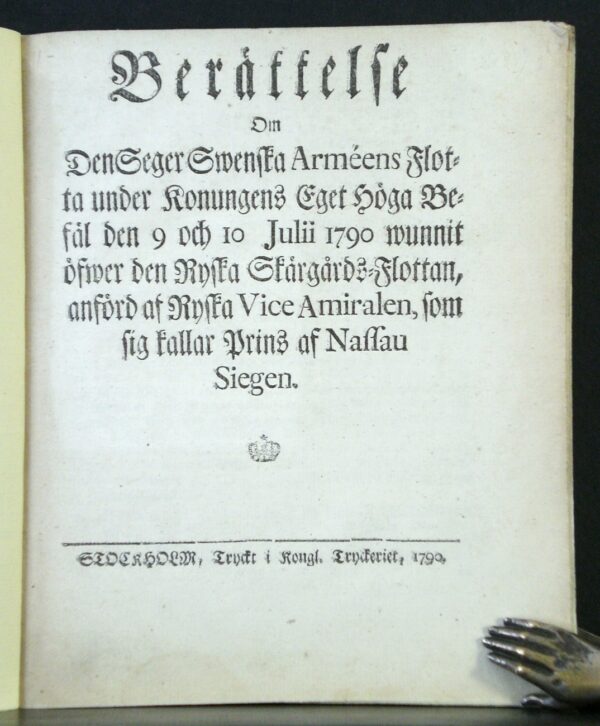 Berättelse
Om
Den Seger Swenska Arméens Flot-
ta under Konungens Eget Höga Be-
fäl den 9 och 10 Julii 1790 wunnit
öfwer den Ryska Skärgårds-Flottan,
anförd af Ryska Vice Amiralen, som
sig kallar Prins af Nassau
Siegen.
STOCKHOLM, Tryckt i Kongl. Tryckeriet, 1790.